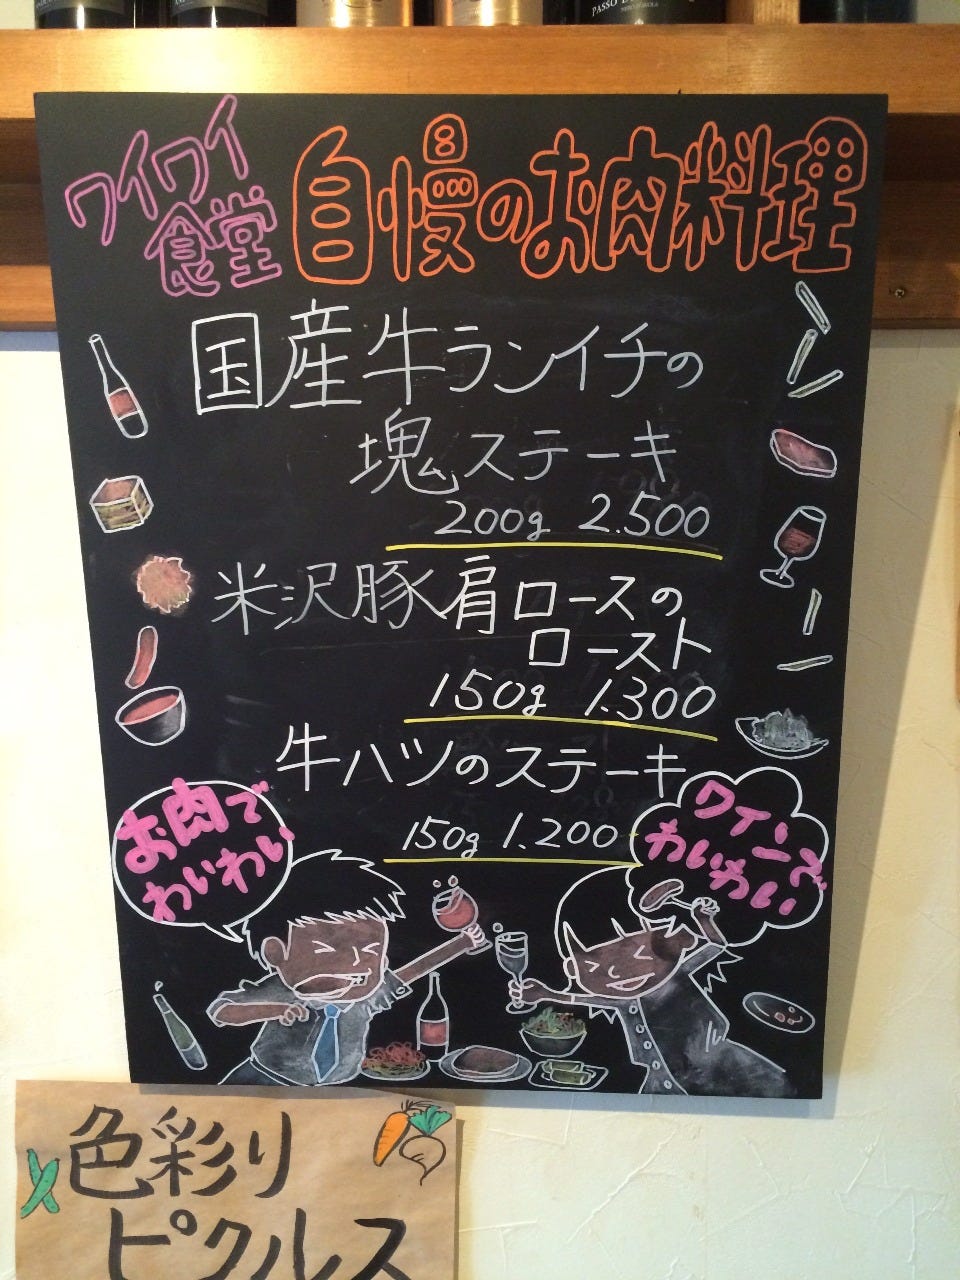 PASSO
ワイワイ
食堂
自慢のお肉料理
国産牛ランイチの
塊ステーキ
200g 2.500
米沢豚肩ロースの
ロースト
150g 1.300
牛ハツのステーキ
150g 1.200
お肉で
わいわい
ワインで
わいわい
色彩り
ピクルス